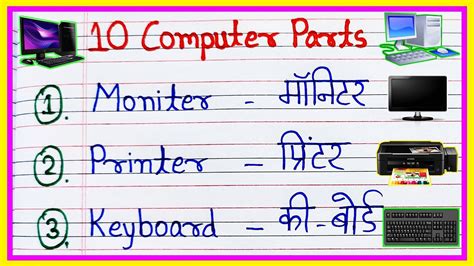 10 Computer Parts
1. Moniter - मॉनिटर
2. Printer - प्रिंटर
3. Keyboard - की-बोर्ड